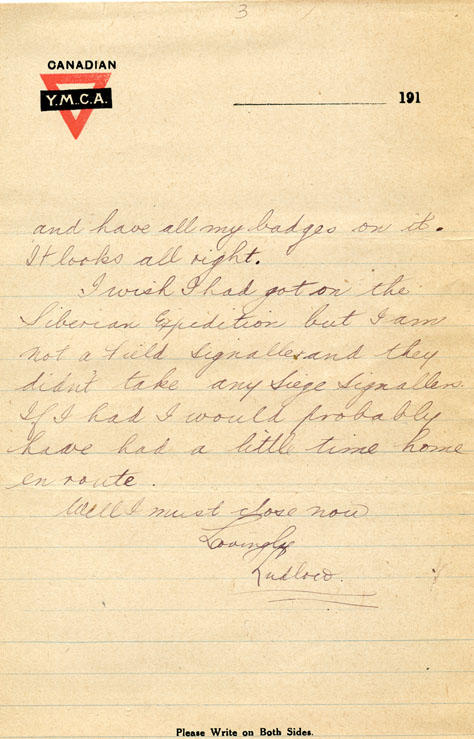 3
CANADIAN
Y.M.C.A.
191
and have all my badges on it.
It looks all right.
I wish I had got on the
Siberian Expedition but I am
not a Field Signaller and they
didn't take any Siege Signallers.
If I had I would probably
have had a little time home
en route.
Well I must close now
Lovingly
Ludlow.
Please Write on Both Sides.